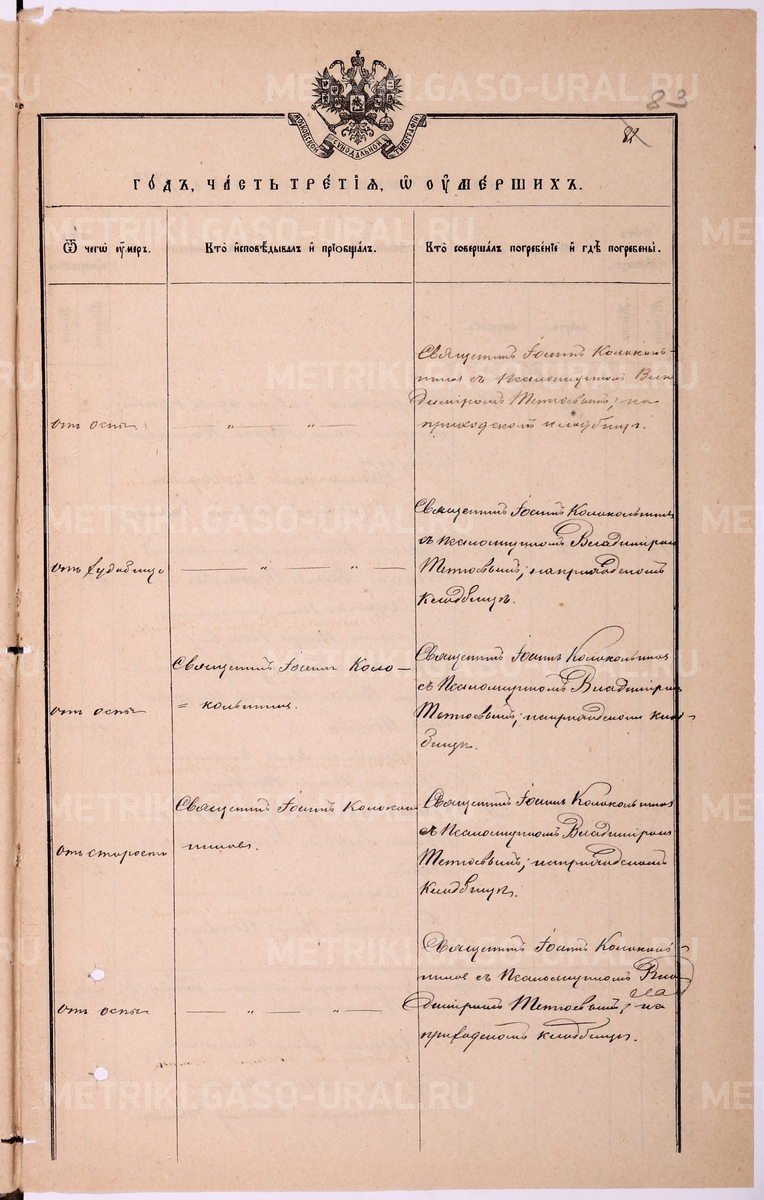 METRIKI.GASO-URAL.RU
83
82
МОСКОВСКОЙ СѴНОДАЛЬНОЙ ТИПОГРАФІИ
ГО́ДЪ, ЧА́СТЬ ТРЕ́ТІѦ, Ѿ ОУ҆МЕ́РШИХЪ.
Ѿ чегѡ̀ ᲂу҆́меръ.
Кто̀ и҆сповѣ́дывалъ и҆ прїѡбща́лъ.
Кто̀ соверша́лъ погребе́нїе и҆ гдѣ̀ погребены̀.
отъ оспы
— „ — „ —
Священникъ Іоаннъ Колоколь-
никовъ съ Псаломщикомъ Вла
димиромъ
на
приходскомъ кладбищѣ.
— „ — „ —
Священникъ Іоаннъ Колокольников
съ Псаломщикомъ Владимиром
на приходскомъ
кладбищѣ.
отъ оспы
Священникъ Іоаннъ Коло-
= кольников.
Священникъ Іоаннъ Колокольников
съ Псаломщикомъ Владимиром
на приходском клад-
бищѣ.
отъ старости
Священникъ Іоаннъ Колоколь
никовъ.
Священникъ Іоаннъ Колокольников
съ Псаломщикомъ Владимиром
на приходскомъ
кладбищѣ.
отъ оспы
— „ — „ —
Священникъ Іоаннъ Колоколь-
никовъ съ Псаломщикомъ Вла
димиромъ
на
приходскомъ кладбищѣ.